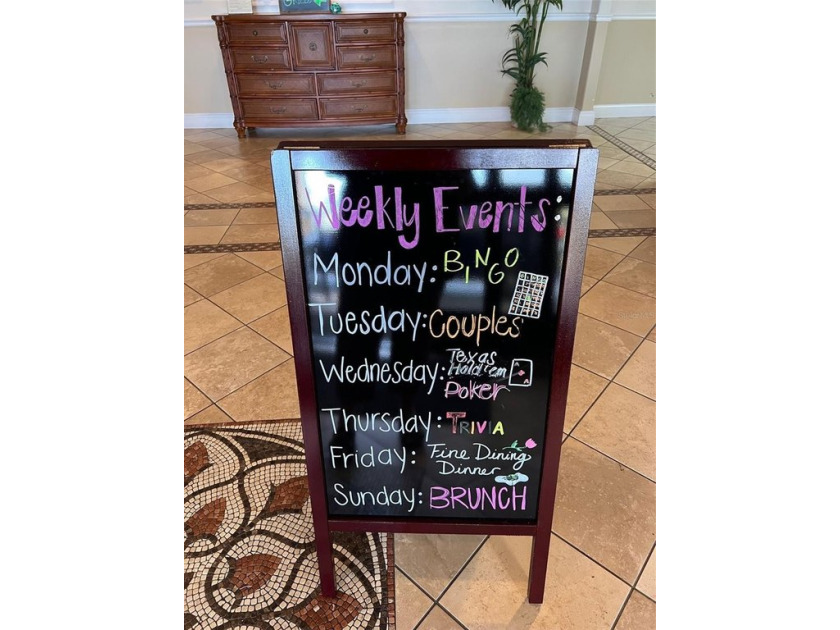 Weekly Events:
Monday: BINGO
Tuesday: COUPLES
Wednesday: Texas Hold'em Poker
Thursday: TRIVIA
Friday: Fine Dining Dinner
Sunday: BRUNCH